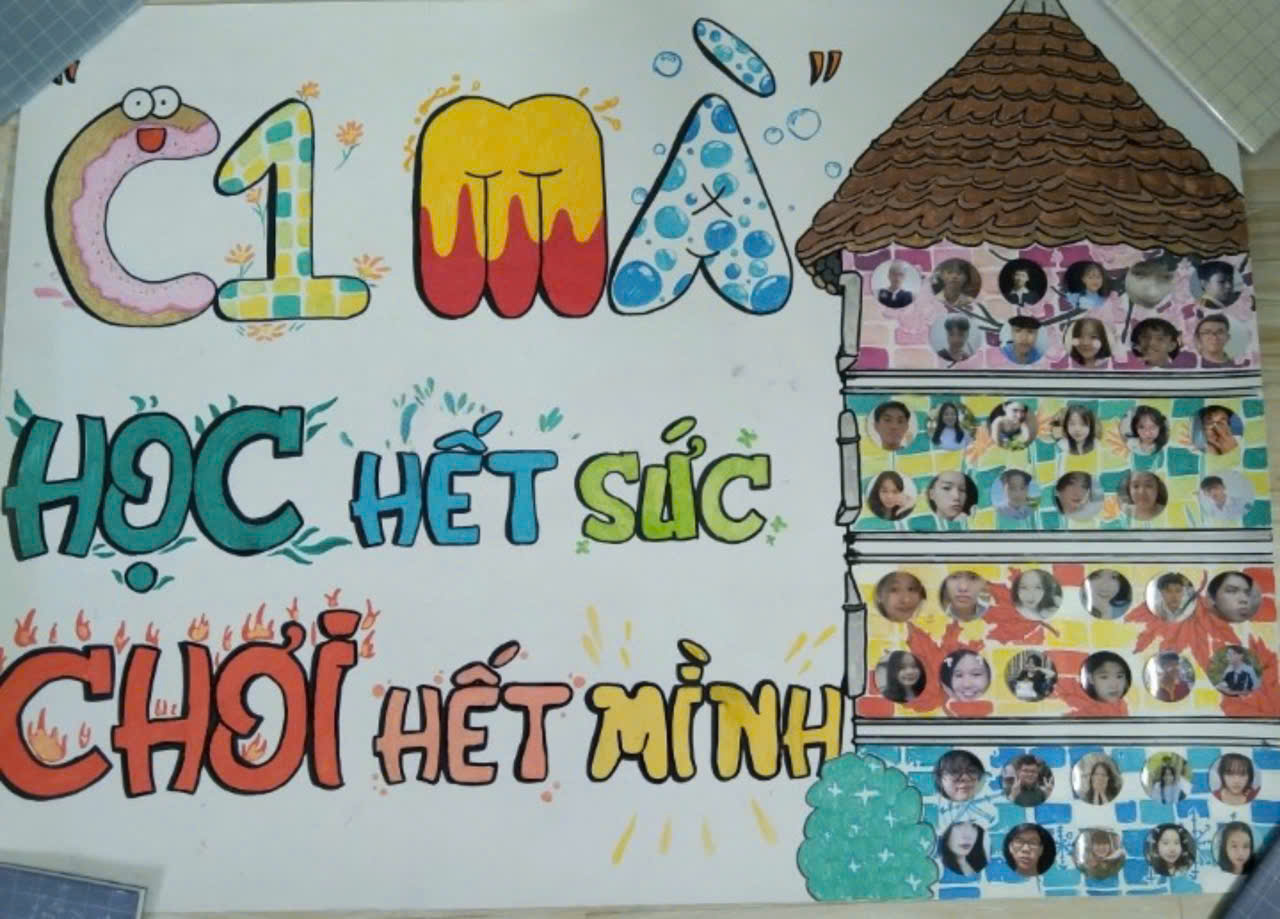 "C1 MÀ"
HỌC HẾT SỨC
CHƠI HẾT MÌNH